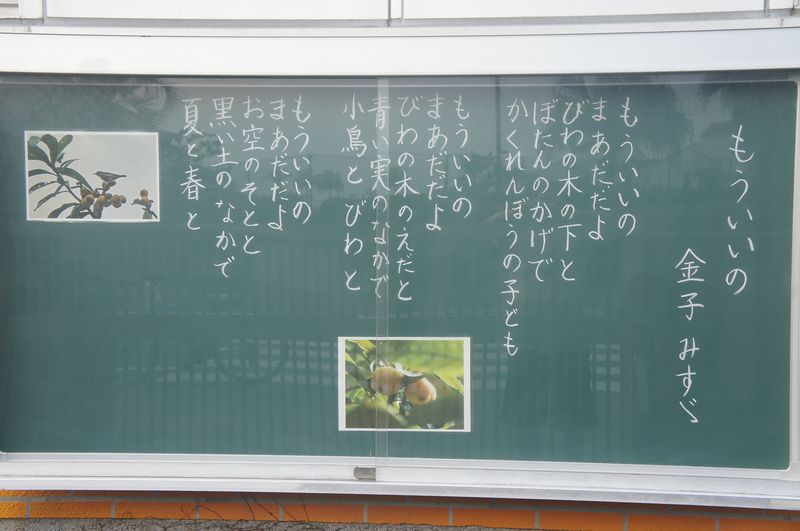 もういいの
金子みすゞ
もういいの
まあだだよ
びわの木の下と
ぼたんのかげで
かくれんぼうの子ども
もういいの
まあだだよ
びわの木のえだと
青い実のなかで
小鳥と びわと
もういいの
まあだだよ
お空のそとと
黒い土のなかで
夏と春と